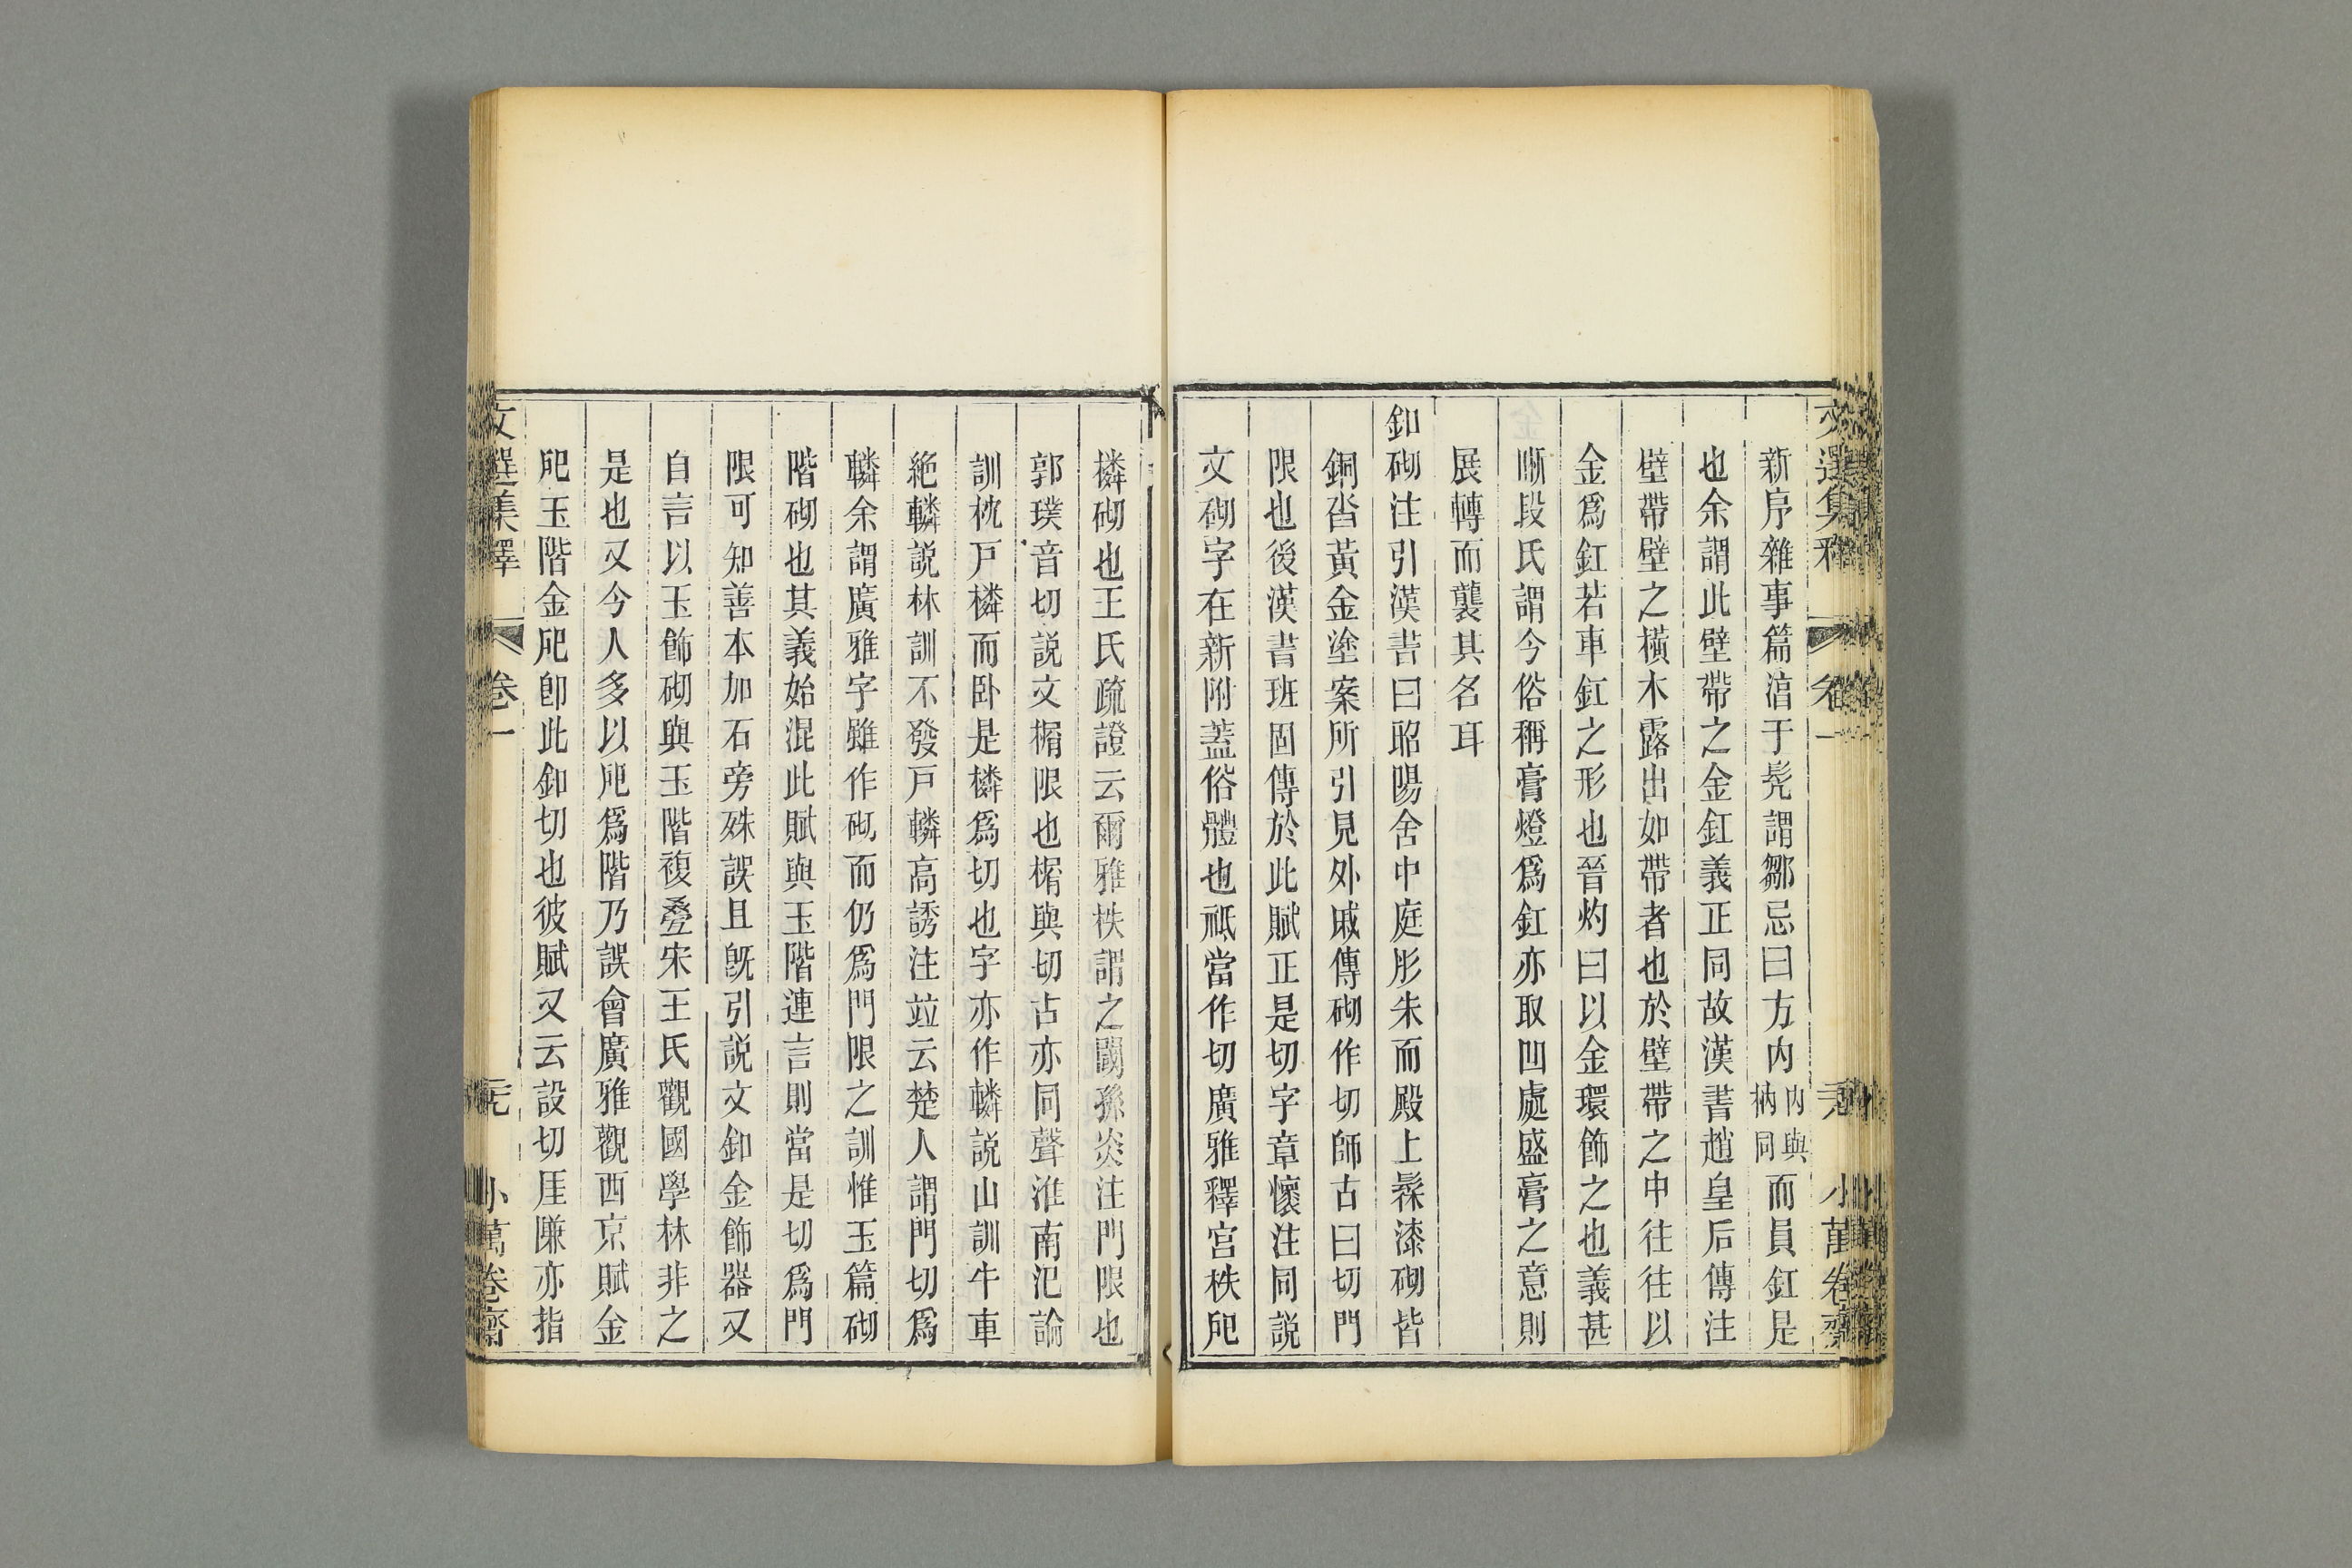 新序雜事篇淳于髡謂鄒忌曰方内内與枘同而員釭是
也余謂此壁帶之金釭義正同故漢書趙皇后傳注
壁帶壁之橫木露出如帶者也於壁帶之中往往以
金爲釭若車釭之形也晉灼曰以金環飾之也義甚
晰段氏謂今俗稱膏燈爲釭亦取凹處盛膏之意則
展轉而襲其名耳
釦砌注引漢書曰昭陽舍中庭彤朱而殿上髹漆砌皆
銅沓黃金塗案所引見外戚傳砌作切師古曰切門
限也後漢書班固傳於此賦正是切字章懷注同説
文砌字在新附蓋俗體也祗當作切廣雅釋宫柣戺
橉砌也王氏疏證云爾雅柣謂之閾孫炎注門限也
郭璞音切説文榍限也榍與切古亦同聲淮南氾論
訓枕戸橉而臥是橉爲切也字亦作轔説山訓牛車
絶轔説林訓不發戸轔高誘注竝云楚人謂門切爲
轔余謂廣雅字雖作砌而仍爲門限之訓惟玉篇砌
階砌也其義始混此賦與玉階連言則當是切爲門
限可知善本加石旁殊誤且旣引説文釦金飾器又
自言以玉飾砌與玉階複疊宋王氏觀國學林非之
是也又今人多以戺爲階乃誤會廣雅觀西京賦金
戺玉階金戺卽此釦切也彼賦又云設切厓隒亦指
文選集釋 卷一 元 小萬卷齋